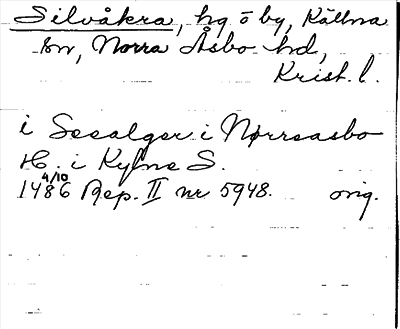 Silvåkra, hg ō by, Källna
sn, Norra Åsbo hd,
Krist. l.
i Seealger i Nørreasbo
H. i Kylne S.
1486 4/10 Rep. II nr 5948. orig.